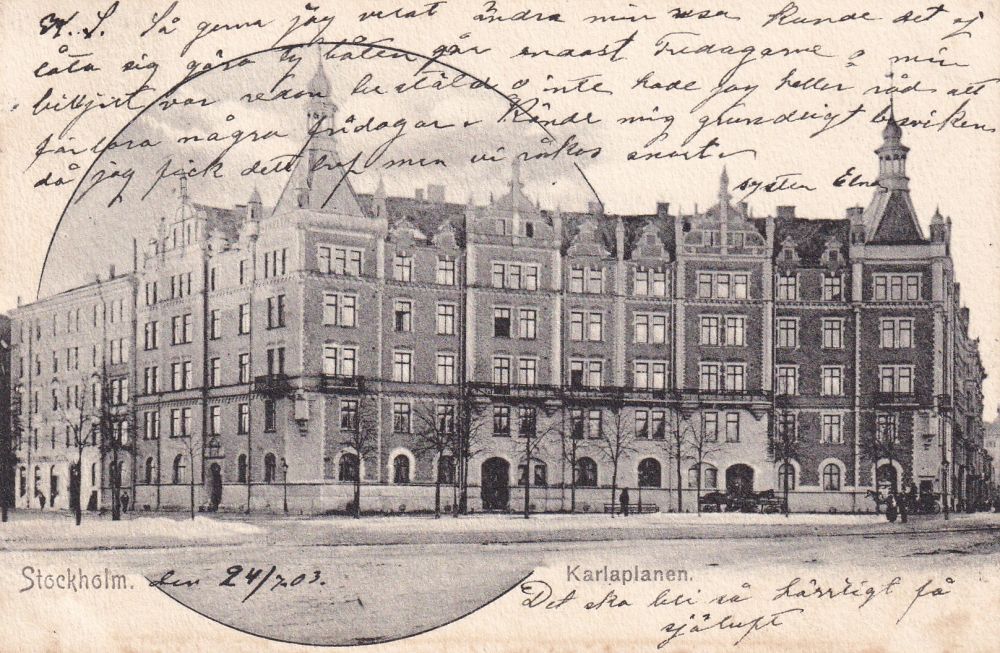 K. S. Så gerna jag velat ändra min resa kunde det ej
låta sig göra ty båten går endast Fredagarne o min
biljett var redan bestäld o inte hade jag heller råd att
förlora några fridagar. Kände mig grundligt besviken
då jag fick dett bref men vi råkas snart.
systen Elna
Stockholm. den 24/7 03.
Karlaplanen.
Det ska bli så härrligt få
sjöluft